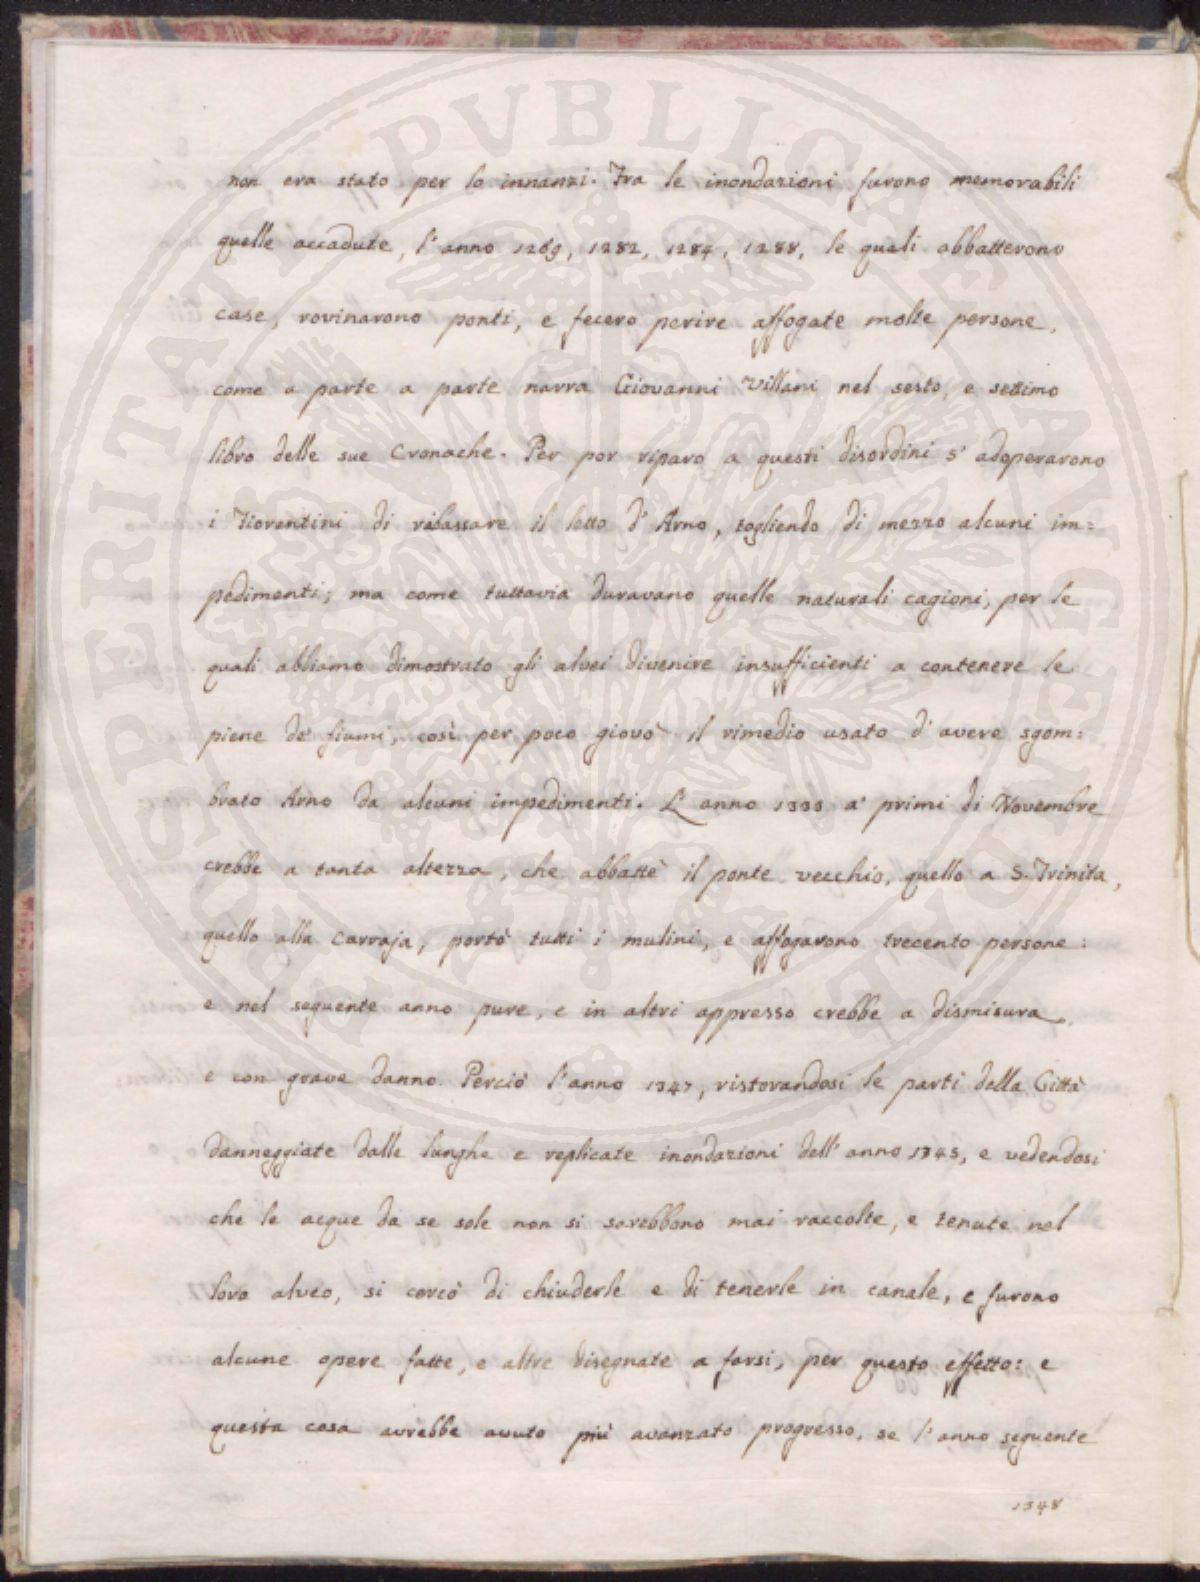 non era stato per lo innanzi. Fra le inondazioni furono memorabili
quelle accadute, l'anno 1269, 1282, 1284, 1288, le quali abbatterono
case, rovinarono ponti, e fecero perire affogate molte persone,
come a parte a parte narra Giovanni Villani nel sesto, e settimo
libro delle sue Cronache. Per por riparo a questi disordini s' adoperarono
i Fiorentini di ribassare il letto d' Arno, togliendo di mezzo alcuni im=
pedimenti; ma come tuttavia duravano quelle naturali cagioni, per le
quali abbiamo dimostrato gli alvei divenire insufficienti a contenere le
piene de' fiumi, così per poco giovò il rimedio usato d' avere sgom=
brato Arno da alcuni impedimenti. L' anno 1333 a' primi di Novembre
crebbe a tanta altezza, che abbattè il ponte vecchio, quello a S. Trinita,
quello alla Carraja, portò tutti i mulini, e affogarono trecento persone:
e nel seguente anno pure, e in altri appresso crebbe a dismisura,
e con grave danno. Perciò l'anno 1347, ristorandosi le parti della Città
danneggiate dalle lunghe e replicate inondazioni dell' anno 1345, e vedendosi
che le acque da se sole non si sarebbono mai raccolte, e tenute nel
loro alveo, si cercò di chiuderle e di tenerle in canale, e furono
alcune opere fatte, e altre disegnate a farsi, per questo effetto: e
questa cosa avrebbe avuto più avanzato progresso, se l'anno seguente
1348
PROSPERITATI PUBLICAE AUGENDAE